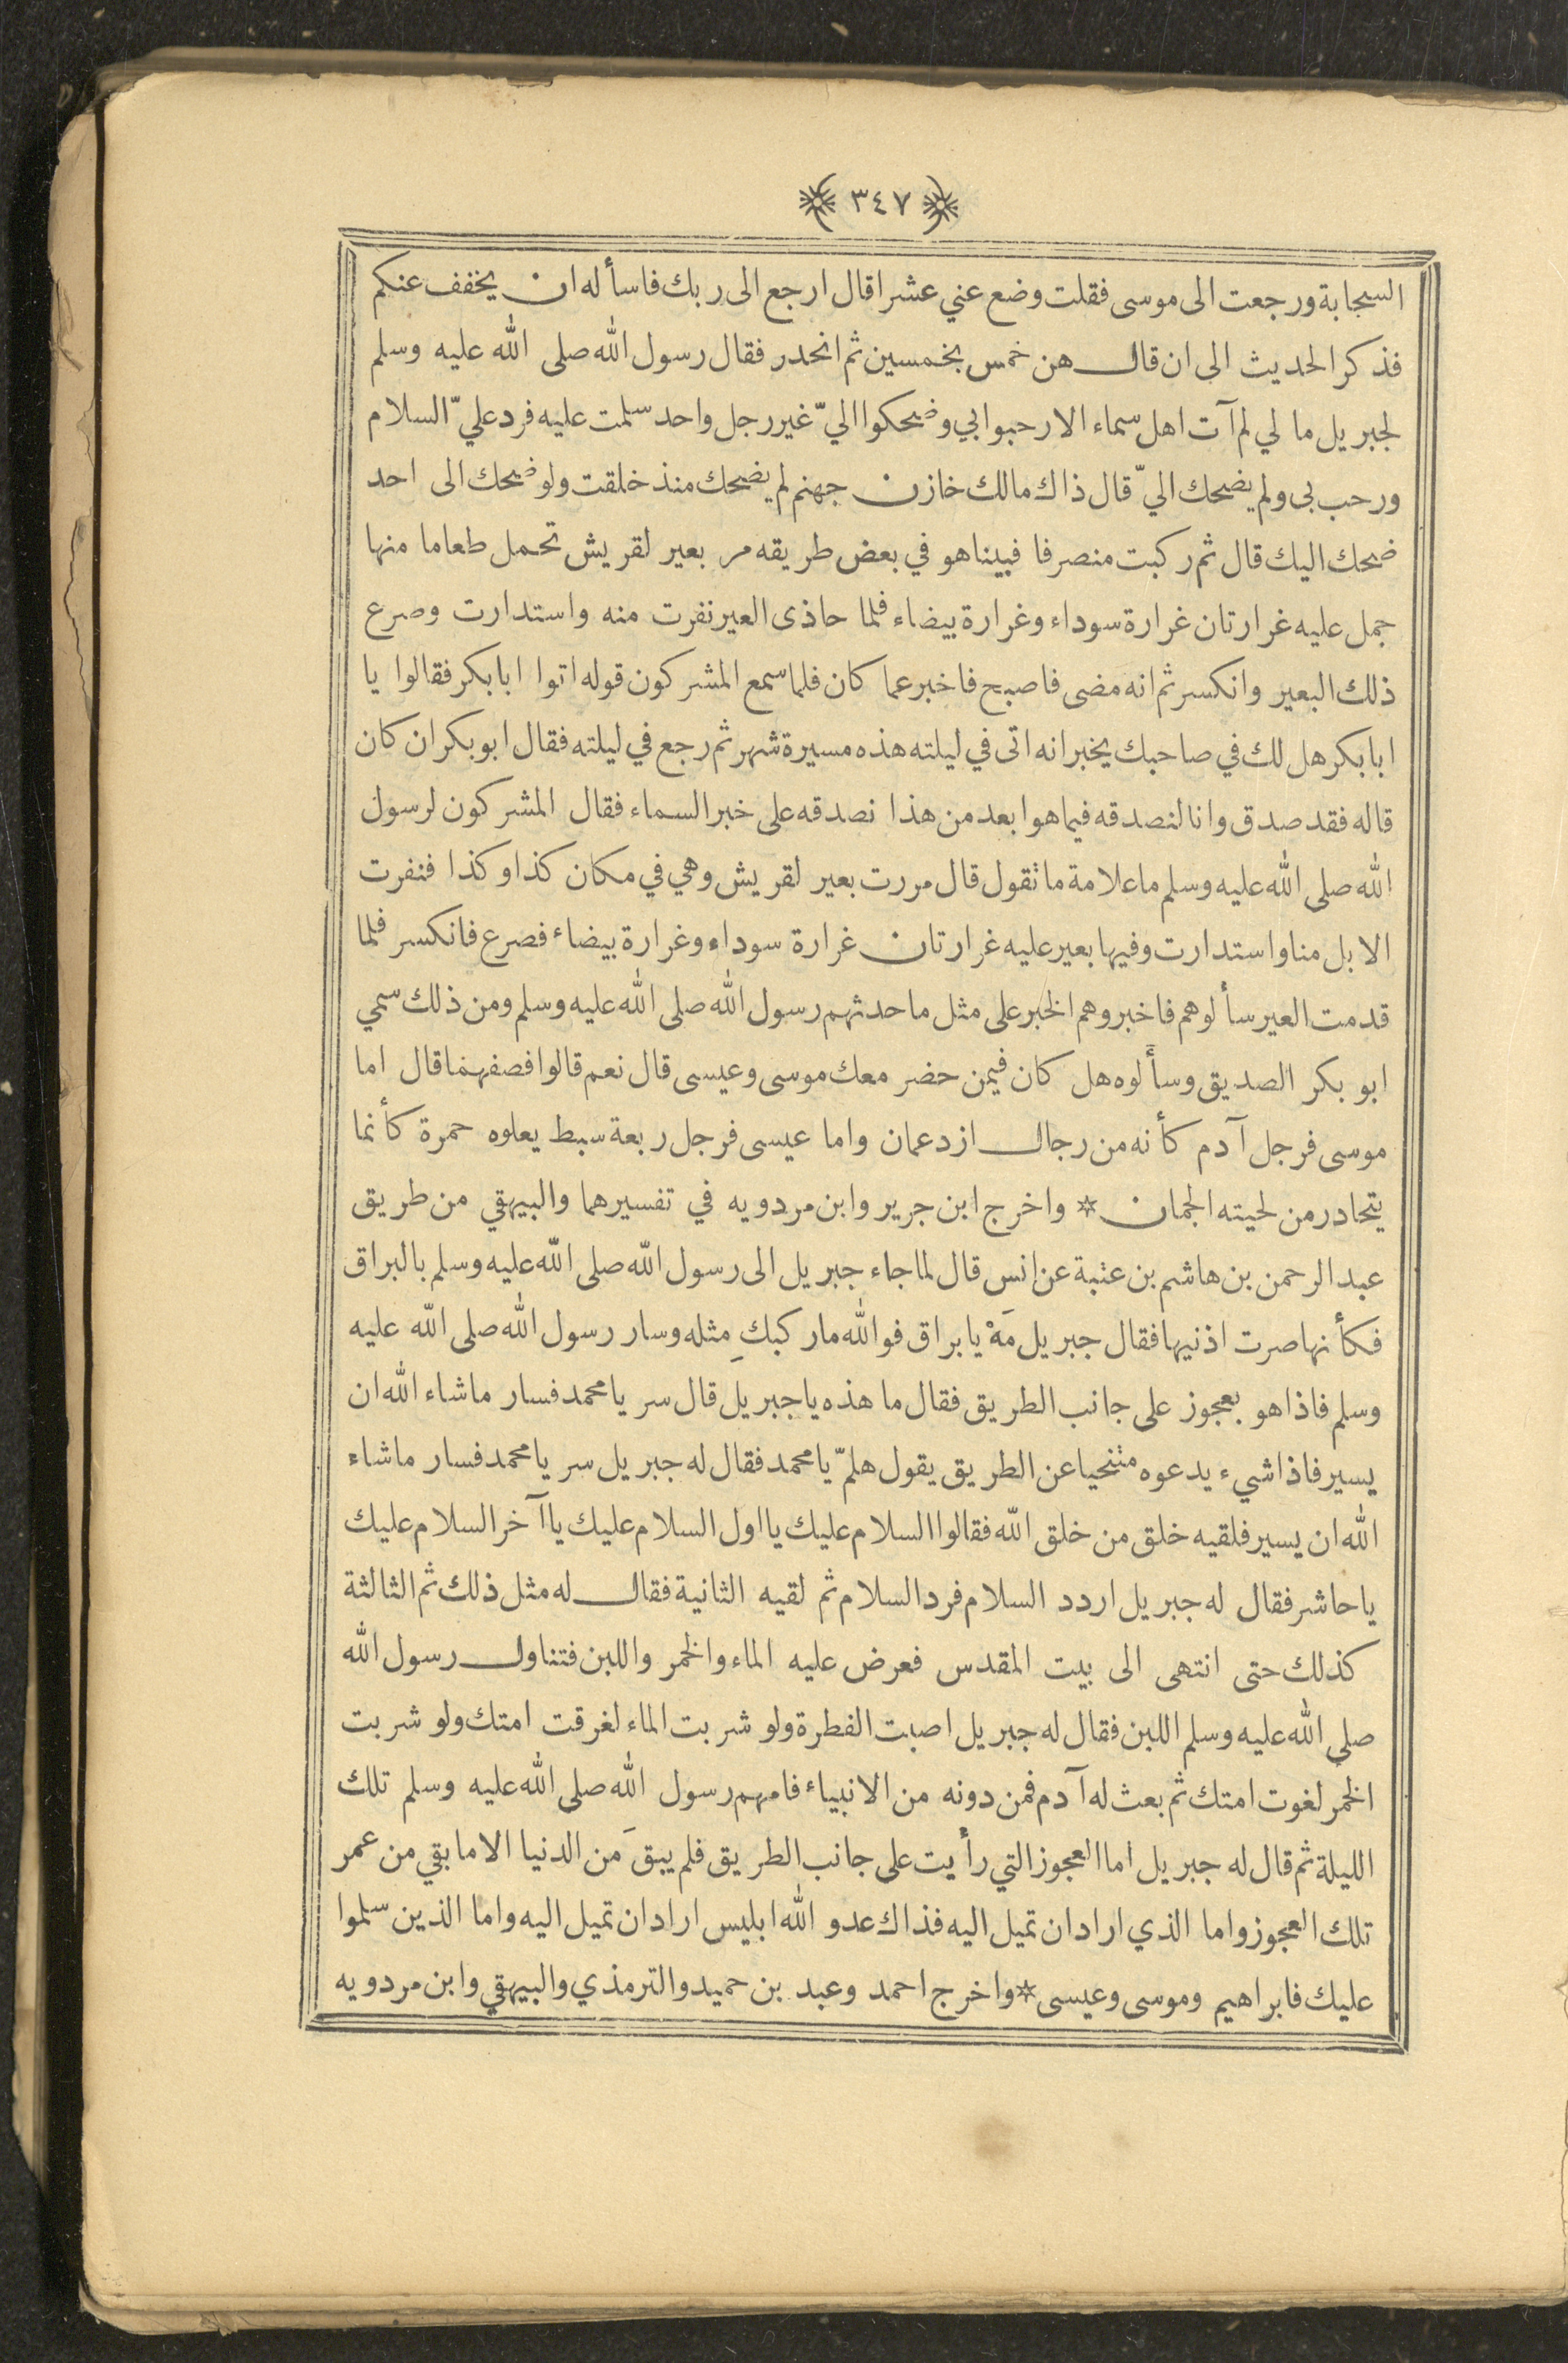 ﴿ ٣٤٧ ﴾
السحابة ورجعت الى موسى فقلت وضع عني عشرا قال ارجع الى ربك فاسأله ان يخفف عنكم
فذكر الحديث الى ان قال هن خمس بخمسين ثم انحدر فقال رسول الله صلى الله عليه وسلم
لجبريل ما لي لم آت اهل سماء الا رحبوا بي وضحكوا اليّ غير رجل واحد سلمت عليه فرد عليّ السلام
ورحب بى ولم يضحك اليّ قال ذاك مالك خازن جهنم لم يضحك منذ خلقت ولو ضحك الى احد
ضحك اليك قال ثم ركبت منصرفا فبينا هو في بعض طريقه مر بعير لقريش تحمل طعاما منها
جمل عليه غرارتان غرارة سوداء وغرارة بيضاء فلما حاذى العير نفرت منه واستدارت وصرع
ذلك البعير وانكسر ثم انه مضى فاصبح فاخبر عما كان فلما سمع المشركون قوله اتوا ابا بكر فقالوا يا
ابا بكر هل لك في صاحبك يخبر انه اتى في ليلته هذه مسيرة شهر ثم رجع في ليلته فقال ابو بكر ان كان
قاله فقد صدق وانا لنصدقه فيما هو ابعد من هذا نصدقه على خبر السماء فقال المشركون لرسول
الله صلى الله عليه وسلم ما علامة ما تقول قال مررت بعير لقريش وهي في مكان كذا وكذا فنفرت
الابل منا واستدارت وفيها بعير عليه غرارتان غرارة سوداء وغرارة بيضاء فصرع فانكسر فلما
قدمت العير سألوهم فاخبروهم الخبر على مثل ما حدثهم رسول الله صلى الله عليه وسلم ومن ذلك سمي
ابو بكر الصديق وسألوه هل كان فيمن حضر معك موسى وعيسى قال نعم قالوا فصفهما قال اما
موسى فرجل آدم كأنه من رجال ازد عمان واما عيسى فرجل ربعة سبط يعلوه حمرة كأنما
يتحادر من لحيته الجمان * واخرج ابن جرير وابن مردويه في تفسيرهما والبيهقي من طريق
عبد الرحمن بن هاشم بن عتبة عن انس قال لما جاء جبريل الى رسول الله صلى الله عليه وسلم بالبراق
فكأنها صرت اذنيها فقال جبريل مَهْ يا براق فوالله ما ركبكِ مثله وسار رسول الله صلى الله عليه
وسلم فاذا هو بعجوز على جانب الطريق فقال ما هذه يا جبريل قال سر يا محمد فسار ما شاء الله ان
يسير فاذا شيء يدعوه متنحيا عن الطريق يقول هلمّ يا محمد فقال له جبريل سر يا محمد فسار ما شاء
الله ان يسير فلقيه خلق من خلق الله فقالوا السلام عليك يا اول السلام عليك يا آخر السلام عليك
يا حاشر فقال له جبريل اردد السلام فرد السلام ثم لقيه الثانية فقال له مثل ذلك ثم الثالثة
كذلك حتى انتهى الى بيت المقدس فعرض عليه الماء والخمر واللبن فتناول رسول الله
صلى الله عليه وسلم اللبن فقال له جبريل اصبت الفطرة ولو شربت الماء لغرقت امتك ولو شربت
الخمر لغوت امتك ثم بعث له آدم فمن دونه من الانبياء فامهم رسول الله صلى الله عليه وسلم تلك
الليلة ثم قال له جبريل اما العجوز التي رأيت على جانب الطريق فلم يبقَ من الدنيا الا ما بقي من عمر
تلك العجوز واما الذي اراد ان تميل اليه فذاك عدو الله ابليس اراد ان تميل اليه واما الذين سلموا
عليك فابراهيم وموسى وعيسى * واخرج احمد وعبد بن حميد والترمذي والبيهقي وابن مردويه